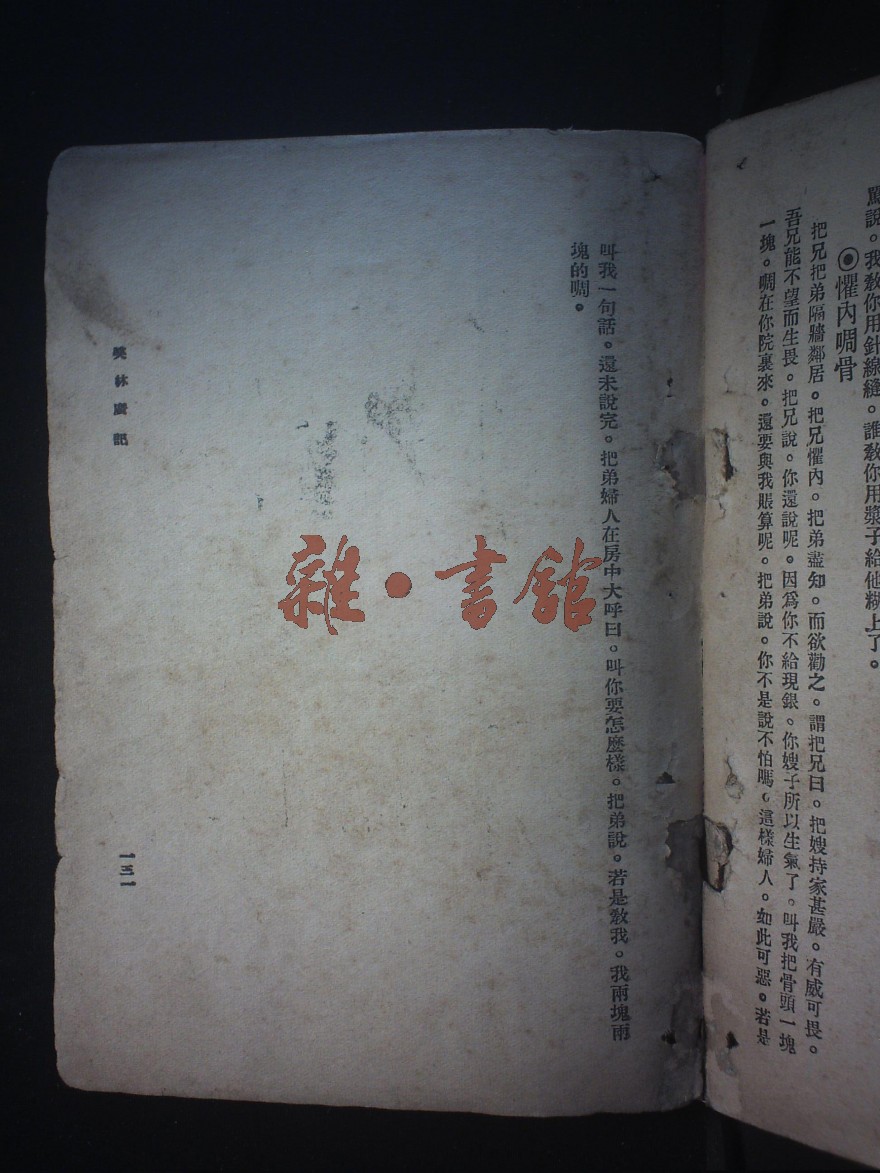 罵說。我敎你用針線縫。誰敎你用漿子給他糊上了。
◉懼內啁骨
把兄把弟隔牆鄰居。把兄懼內。把弟盡知。而欲勸之。謂把兄曰。把嫂持家甚嚴。有威可畏。
吾兄能不望而生畏。把兄說。你還說呢。因爲你不給現銀、你嫂子所以生氣了。叫我把骨頭一塊
一塊。啁在你院裏來。還要與我賬算呢。把弟說。你不是說不怕嗎。這樣婦人。如此可惡。若是
叫我一句話。還未說完。把弟婦人在房中大呼曰。叫你要怎麼樣。把弟說。若是敎我。我兩塊兩
塊的啁。
笑林廣記
一三一
雜·書館